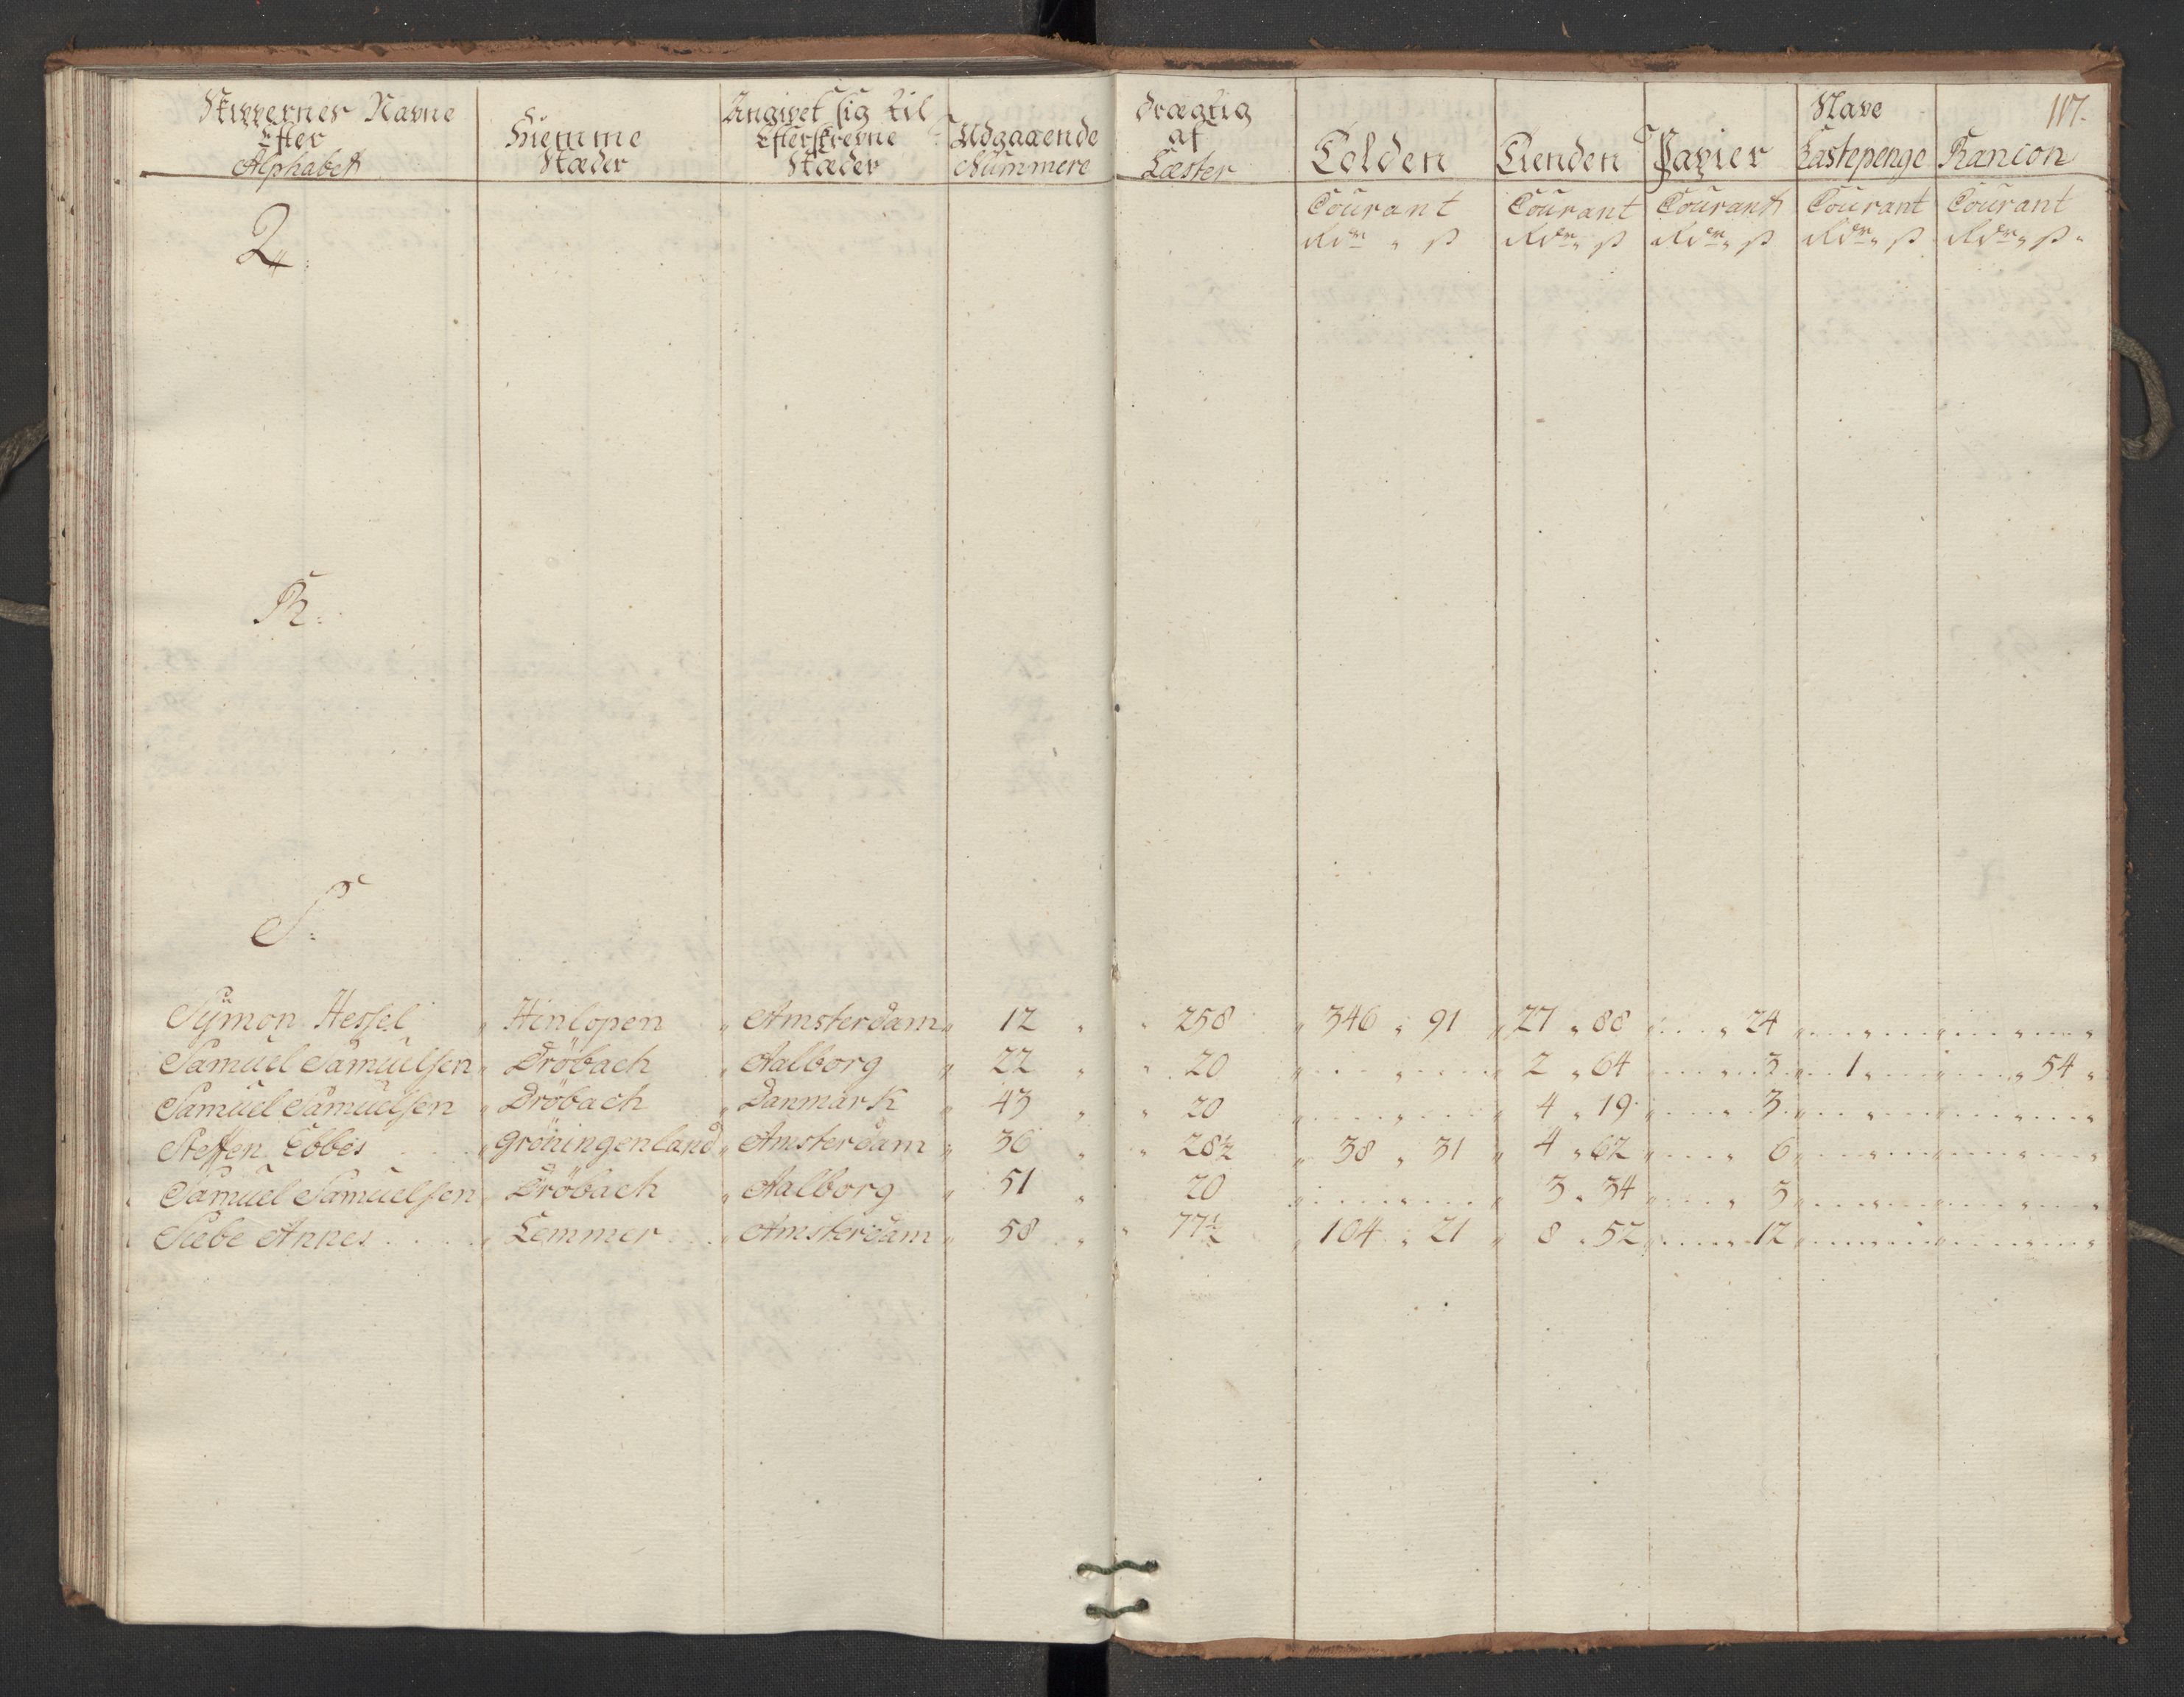 117.
Skippernes Navne Efter Alphabet | Hiemme Stæder | Angivet sig til Efterskrevne Stæder | Udgaaende Nummere | Drægtig af Læster | Tolden | Tienden | Papier | Have Lastepenge | Rancon
Courant | Courant | Courant | Courant | Courant
Rdr „ ß | Rdr „ ß | Rdr „ ß | Rdr „ ß | Rdr „ ß
Q:
R:
S:
Sÿmon Hessel „ Hinlopen „ Amsterdam „ 12 „ „ 258 „ 346 „ 91 „ 27 „ 88 „ 24
Samuel Samuelsen „ Dröbach „ Aalborg „ 22 „ „ 20 „ 2 „ 64 „ 3 „ 1 „ „ 54 „
Samuel Samuelsen „ Dröbach „ Danmark „ 43 „ „ 20 „ 4 „ 19 „ 3
Steffen Ebbes „ Gröningenland „ Amsterdam „ 36 „ „ 28½ „ 38 „ 31 „ 4 „ 62 „ 6
Samuel Samuelsen „ Dröbach „ Aalborg „ 51 „ 20 „ 3 „ 34 „ 3
Siebe Annes „ Lemmer „ Amsterdam „ 58 „ „ 77½ „ 104 „ 21 „ 8 „ 52 „ 12